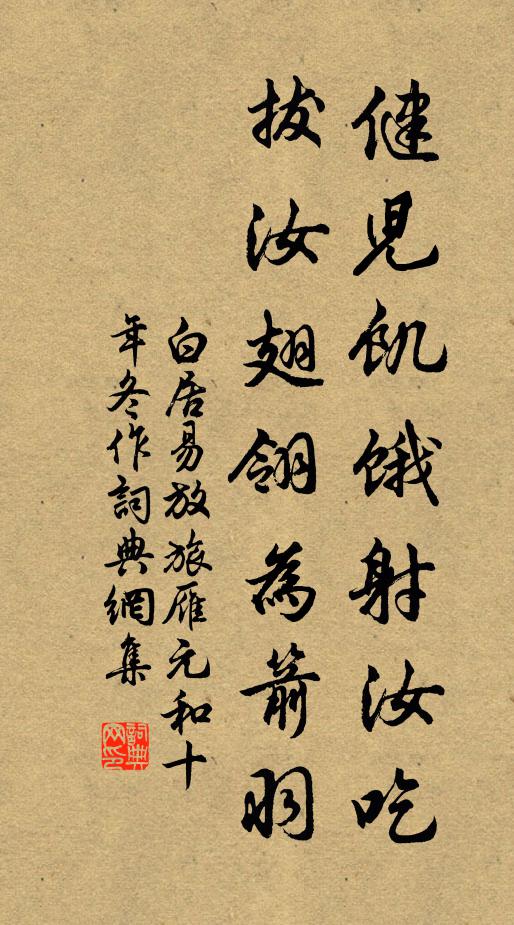 健児飢餓射汝吃
拔汝翅翎為箭羽
白居易放旅雁元和十
年冬作詞典網集
詞典
网印